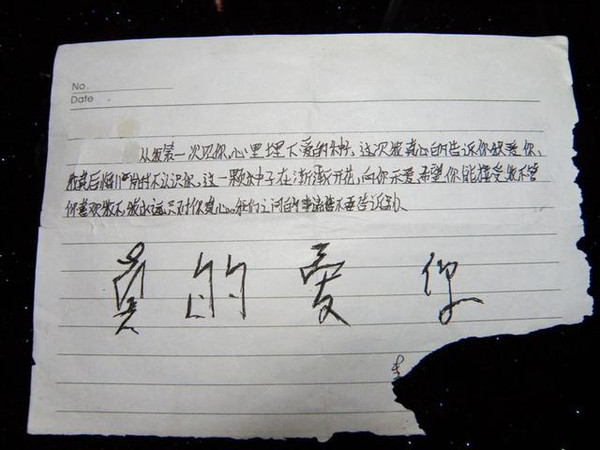 No.
Date
从我第一次见你,心里埋下爱的种子,这次我真心的告诉你我爱你,
我真后悔 不认识你,这一颗种子在渐渐开花,向你示爱希望你能接受我不管
你喜欢我不,我永远只对你真心。我们之间的事请不要告诉别人
真的爱你
李